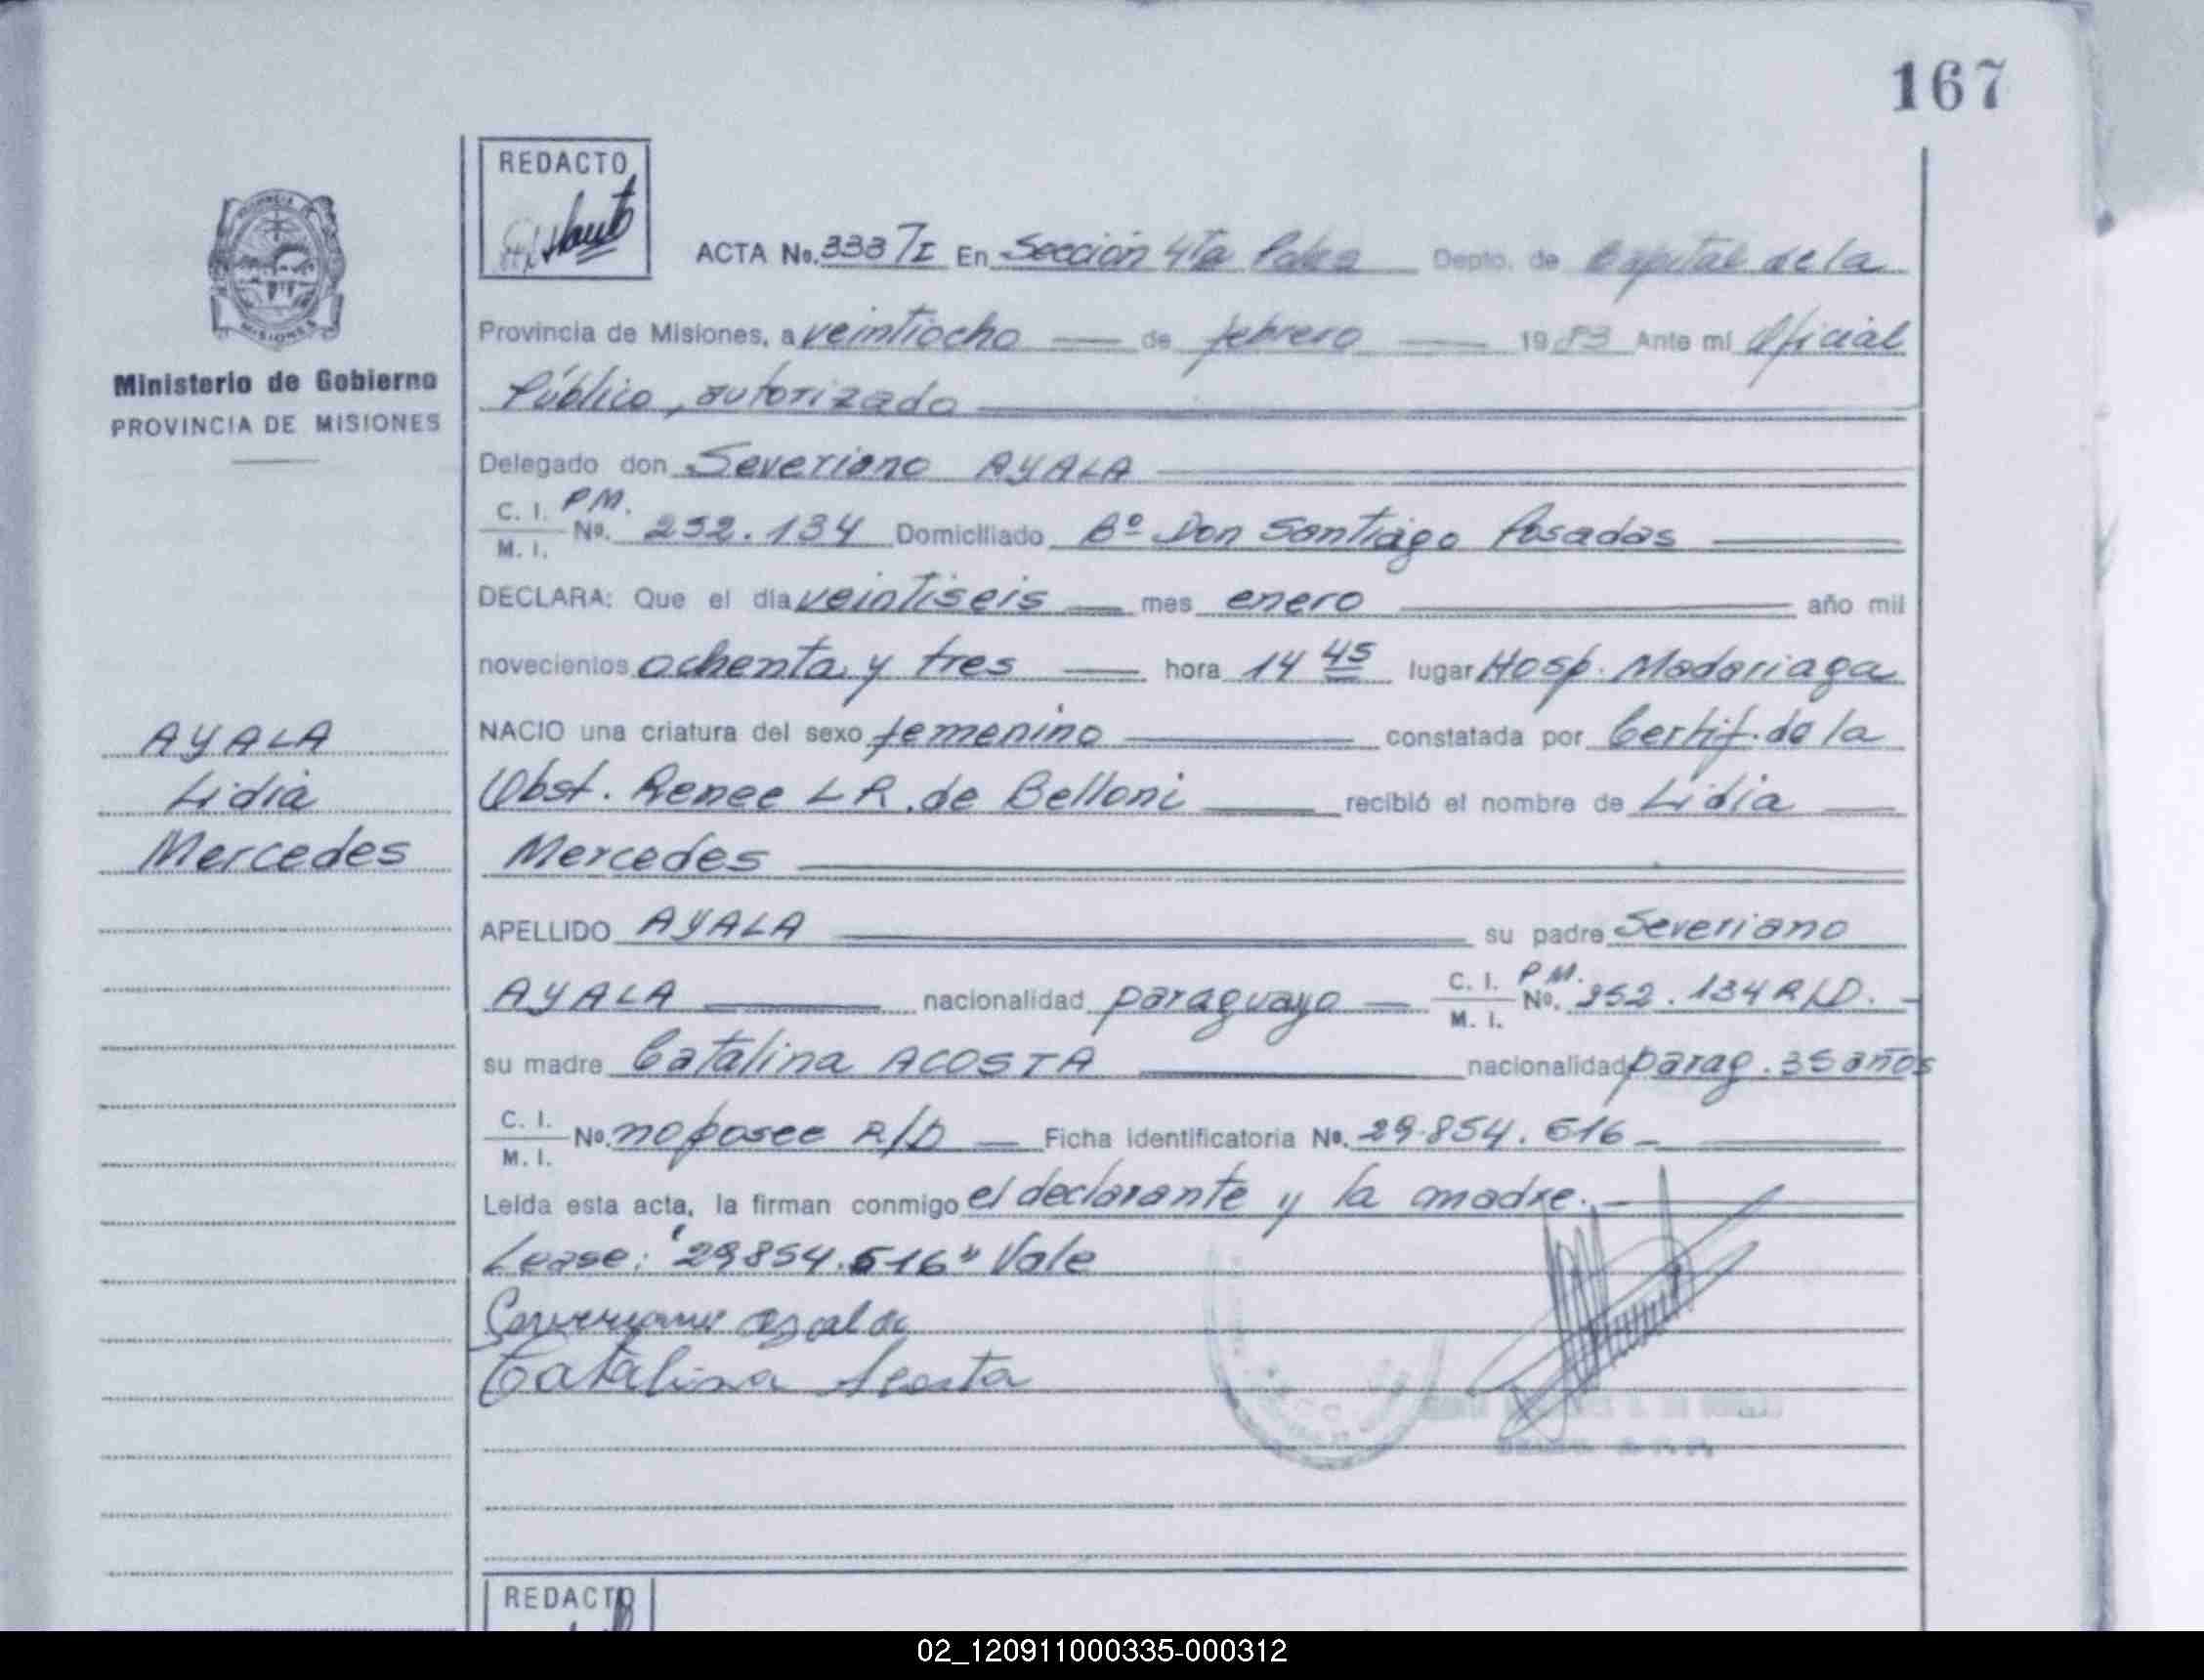 167
REDACTO
ACTA No. 333/I En Sección 4ta Pdas Depto. de Capital de la
Provincia de Misiones, a veintiocho de febrero 1983 Ante mi Oficial
Público, autorizado
Ministerio de Gobierno
PROVINCIA DE MISIONES
Delegado don Severiano AYALA
C. I. P.M.
M. I. No. 252.134 Domiciliado Bº Don Santiago Posadas
DECLARA: Que el día veintiseis mes enero año mil
novecientos ochenta y tres hora 14 45 lugar Hosp. Madariaga
AYALA
Lidia
Mercedes
NACIO una criatura del sexo femenino constatada por Certif. de la
Obst. Renee L R. de Belloni recibió el nombre de Lidia
Mercedes
APELLIDO AYALA su padre Severiano
AYALA nacionalidad paraguayo C. I. M. I. P.M. No. 252.134 R/D.
su madre Catalina ACOSTA nacionalidad parag. 35 años
C. I. M. I. No. no posee R/D Ficha identificatoria No. 29.854.616
Leída esta acta, la firman conmigo el declarante y la madre.
Lease: "29854.616" Vale
Catalina Acosta
REDACTO
02_120911000335-000312